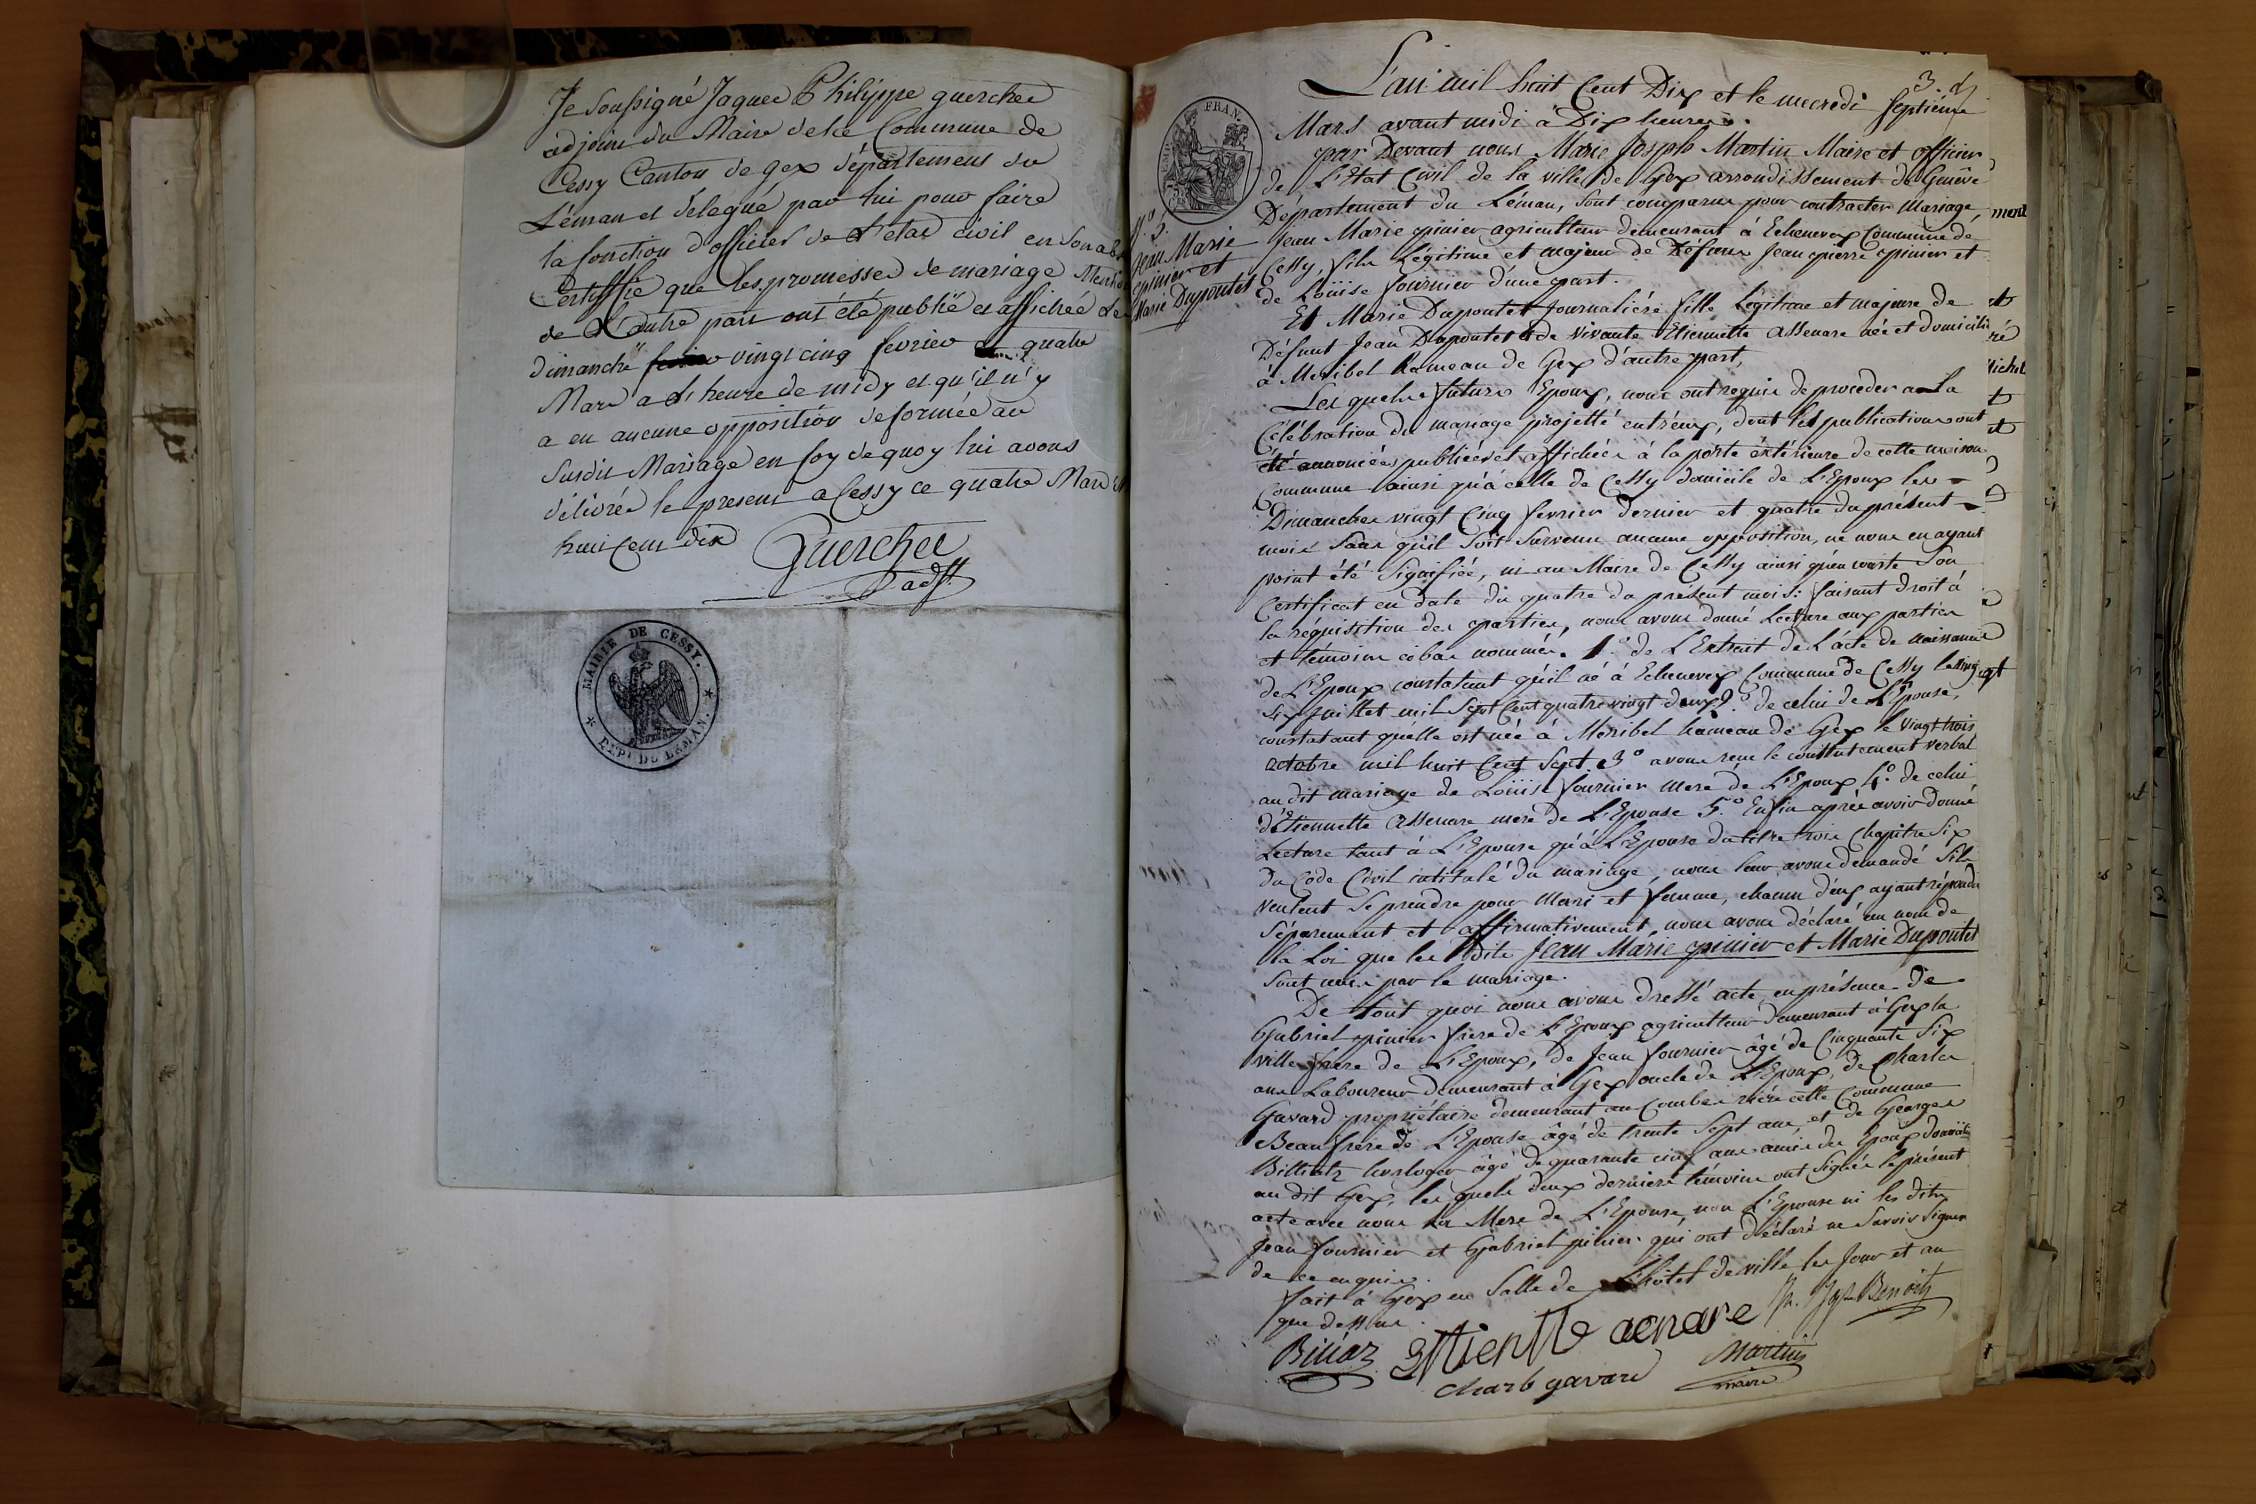 Je soussigné Jaques Philippe querchet
adjoint du Maire de la Commune de
Cessy Canton de gex département du
Léman et délegué par lui pour faire
la fonction d'officier de l'état civil en son abs
Certiffie que les promesses de mariage Mentio
de l'autre part ont été publié et affichée Les
dimanche vingt cinq fevrier et quatre
Mars a l'heure de midy et qu'il n'y
a eu aucune opposition de formée au
susdit Mariage en foy de quoy lui avons
délivrée le present a Cessy ce quatre Mars
huit Cent dix
Querchet
adjt.
MAIRIE DE CESSY.
DEPt. DU LEMAN.
3. d
L'an mil huit Cent Dix et le mecredi Septième
Mars avant midi à Dix heures.
par Devant nous Marie Joseph Martin Maire et officier
de L'Etat Civil de la ville de Gex arrondissement de Genève
Département du Léman, sont comparus pour contracter Mariage,
FRAN.
N.o 5.
Jean Marie
pinier et
Marie Dupontet
Jean Marie pinier agriculteur demeurant à Echenevex Commune de
Cessy, fils Légitime et majeur de Défunt Jean pierre pinier et
de Loüise fournier d'une part.
Et Marie Dupontet Journalière fille Légitime et majeure de
Défunt Jean Dupontet et de vivante Etiennette Assenare née et domicilié
à Meribel hameau de Gex d'autre part,
Les quels futurs Epoux, nous ont requis de proceder a La
Célébration du mariage projetté entr'eux, dont les publications ont
été annoncées publiées et affichées à la porte éxtérieure de cette maison
Commune ainsi qu'à celle de Cessy domicile de L'Epoux les
Dimanches vingt Cinq fevrier dernier et quatre du présent
mois sans qu'il soit survenu aucune opposition, ne nous en ayant
point été signifiée, ni au Maire de Cessy ainsi qu'en conste son
Certificat en date du quatre du présent mois: faisant droit à
la réquisition des parties, nous avons donné Lecture aux parties
et témoins cibas nommés. 1.o de L'Extrait de L'acte de naissance
de L'Epoux constatant qu'il né à Echenevex Commune de Cessy le vingt
six juillet mil sept Cent quatre vingt deux 2.o de celui de L'Epouse,
constatant qu'elle est née à Méribel hameau de Gex le vingt trois
octobre mil huit Cent sept. 3.o avons reçu le consentement verbal
au dit mariage de Loüise fournier mere de L'Epoux 4.o de celui
d'Etiennette Assenare mere de L'Epouse 5.o Enfin après avoir donné
Lecture tant à L'Epoux qu'à L'Epouse du titre trois Chapitre Six
Du Code Civil intitulé du mariage, nous leur avons demandé s'ils
veulent se prendre pour Mari et femme, chacun d'eux ayant répondu
séparement et affirmativement, nous avons déclaré au nom de
la Loi que les dits Jean Marie pinier et Marie Dupontet
sont unis par le mariage.
De tout quoi nous avons dressé acte en présence de
Gabriel pinier frere de L'Epoux agriculteur demeurant à Gex la
ville frere de L'Epoux, de Jean fournier âgé de Cinquante Six
ans Laboureur demeurant à Gex oncle de L'Epoux, de Charles
Gavard propriétaire demeurant au Combe rière cette Commune
Beau frere de L'Epouse âgé de trente sept ans, et de Georges
horloger âgé de quarante cinq ans amis des Epoux domicilié
au dit Gex, les quels deux derniers témoins ont signés le présent
acte avec nous la Mere de L'Epouse, non L'Epouse ni les dits
Jean fournier et Gabriel pinier qui ont déclaré ne savoir signer
de ce enquis.
fait à Gex en Salle de L'hôtel de ville les Jour et an
que dessus.
Billiaz Ettienette acnare Benoitz
charle gavard Martin
maire